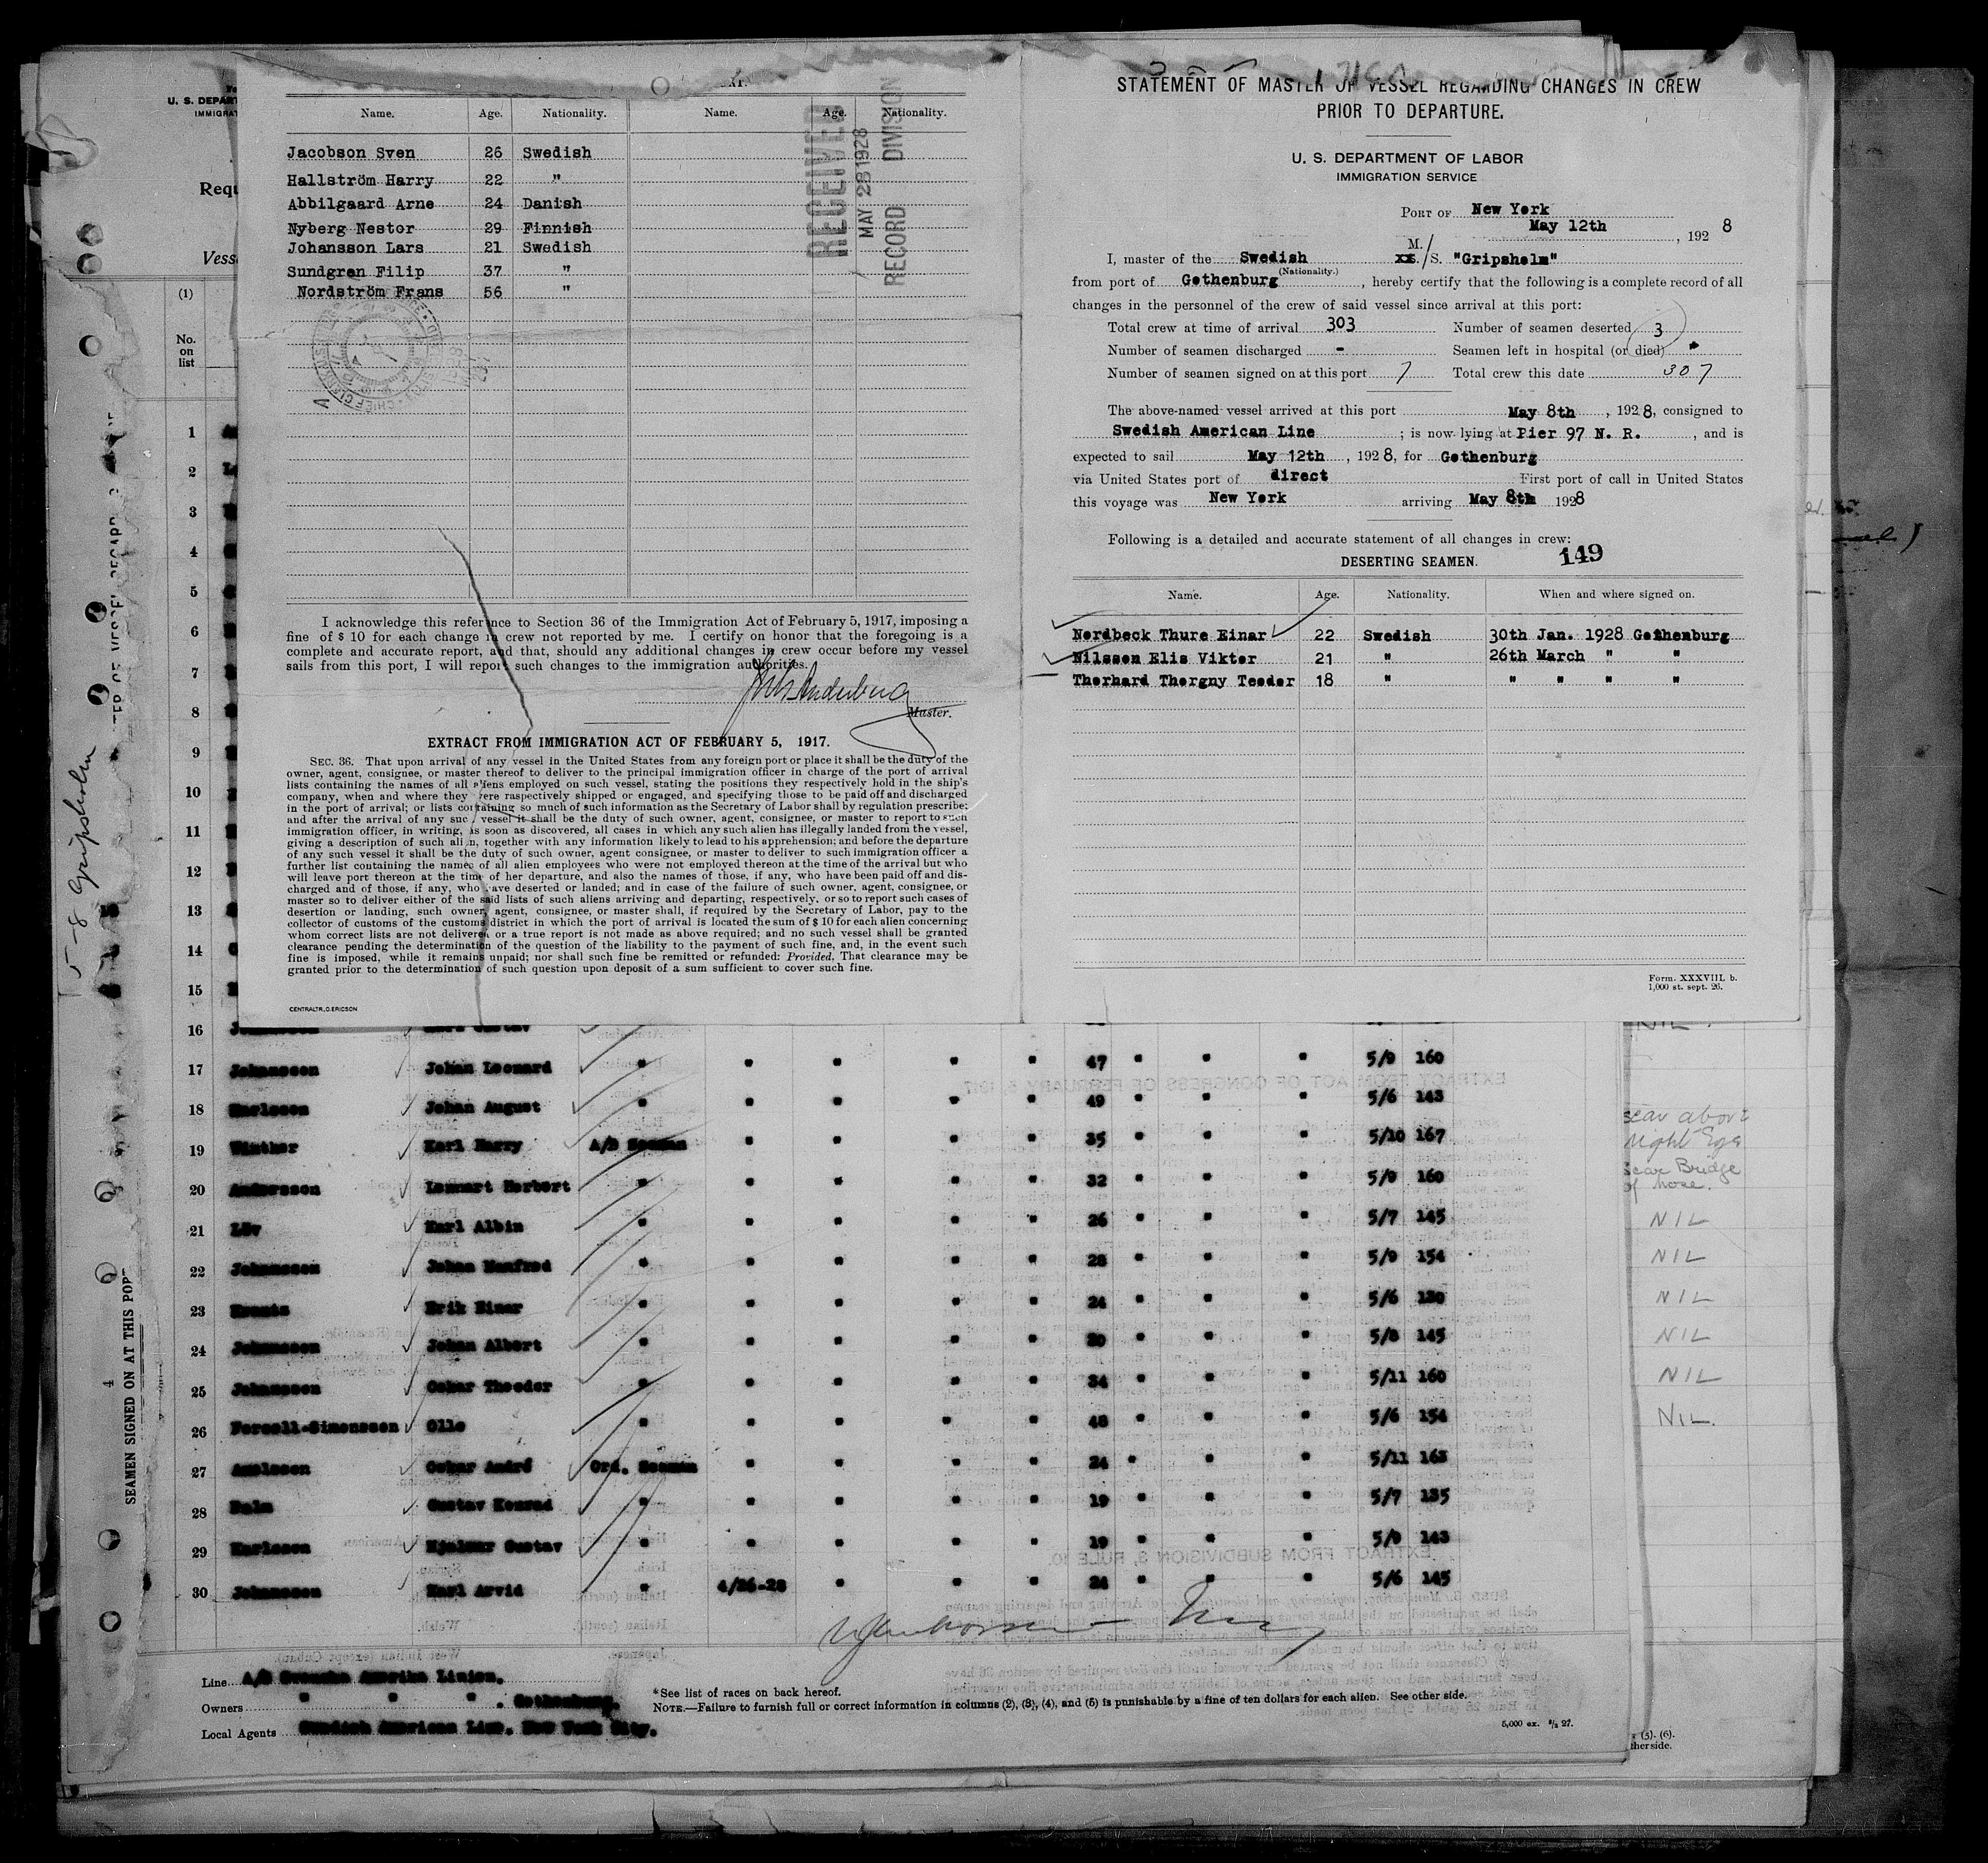 Name. Age. Nationality. Name. Age. Nationality.
Jacobson Sven 26 Swedish
Hallström Harry 22 "
Abbilgaard Arne 24 Danish
Nyberg Nestor 29 Finnish
Johansson Lars 21 Swedish
Sundgren Filip 37 "
Nordström Frans 56 "
RECEIVED
MAY 28 1928
RECORD DIVISION
I acknowledge this reference to Section 36 of the Immigration Act of February 5, 1917, imposing a
fine of $ 10 for each change in crew not reported by me. I certify on honor that the foregoing is a
complete and accurate report, and that, should any additional changes in crew occur before my vessel
sails from this port, I will report such changes to the immigration authorities.
Master.
EXTRACT FROM IMMIGRATION ACT OF FEBRUARY 5, 1917.
SEC. 36. That upon arrival of any vessel in the United States from any foreign port or place it shall be the duty of the
owner, agent, consignee, or master thereof to deliver to the principal immigration officer in charge of the port of arrival
lists containing the names of all aliens employed on such vessel, stating the positions they respectively hold in the ship's
company, when and where they were raspectively shipped or engaged, and specifying those to be paid off and discharged
in the port of arrival; or lists containing so much of such information as the Secretary of Labor shall by regulation prescribe;
and after the arrival of any such vessel it shall be the duty of such owner, agent, consignee, or master to report to such
immigration officer, in writing, as soon as discovered, all cases in which any such alien has illegally landed from the vessel,
giving a description of such alien, together with any information likely to lead to his apprehension; and before the departure
of any such vessel it shall be the duty of such owner, agent consignee, or master to deliver to such immigration officer a
further list containing the names of all alien employees who were not employed thereon at the time of the arrival but who
will leave port thereon at the time of her departure, and also the names of those, if any, who have been paid off and dis-
charged and of those, if any, who have deserted or landed; and in case of the failure of such owner, agent, consignee, or
master so to deliver either of the said lists of such aliens arriving and departing, respectively, or so to report such cases of
desertion or landing, such owner, agent, consignee, or master shall, if required by the Secretary of Labor, pay to the
collector of customs of the customs district in which the port of arrival is located the sum of $ 10 for each alien concerning
whom correct lists are not delivered or a true report is not made as above required; and no such vessel shall be granted
clearance pending the determination of the question of the liability to the payment of such fine, and, in the event such
fine is imposed, while it remains unpaid; nor shall such fine be remitted or refunded: Provided, That clearance may be
granted prior to the determination of such question upon deposit of a sum sufficient to cover such fine.
CENTRALTR., O. ERICSON
STATEMENT OF MASTER OF VESSEL REGARDING CHANGES IN CREW
PRIOR TO DEPARTURE.
U. S. DEPARTMENT OF LABOR
IMMIGRATION SERVICE
PORT OF New York
May 12th, 1928
I, master of the Swedish M./S. "Gripsholm"
(Nationality.)
from port of Gothenburg, hereby certify that the following is a complete record of all
changes in the personnel of the crew of said vessel since arrival at this port:
Total crew at time of arrival 303 Number of seamen deserted 3
Number of seamen discharged - Seamen left in hospital (or died)
Number of seamen signed on at this port 7 Total crew this date 307
The above-named vessel arrived at this port May 8th, 1928, consigned to
Swedish American Line; is now lying at Pier 97 N. R., and is
expected to sail May 12th, 1928, for Gothenburg
via United States port of direct First port of call in United States
this voyage was New York arriving May 8th 1928
Following is a detailed and accurate statement of all changes in crew:
DESERTING SEAMEN. 149
Name. Age. Nationality. When and where signed on.
Nordbeck Thure Einar 22 Swedish 30th Jan. 1928 Gothenburg
Nilsson Elis Viktor 21 " 26th March " "
Thorhard Thorgny Teodor 18 " " " " "
Form. XXXVIII. b.
1,000 st. sept. 26.
U. S. DEPART
IMMIGRAT
Requ
Vesse
(1)
No.
on
list
5-8 Gripsholm
SEAMEN SIGNED ON AT THIS PORT
1
2
3
4
5
6
7
8
9
10
11
12
13
14
15
16
17 Johansson Johan Leonard " " " " " 47 " " " 5/9 160
18 Karlsson Johan August " " " " " 49 " " " 5/6 143
19 Winther Karl Harry A/B Seaman " " " " 35 " " " 5/10 167
20 Andersson Lennart Herbert " " " " " 32 " " " 5/9 160
21 Löv Karl Albin " " " " " 26 " " " 5/7 145
22 Johansson Johan Manfred " " " " " 28 " " " 5/9 154
23 Erik Einar " " " " " 24 " " " 5/6 130
24 Johansson Johan Albert " " " " " " " " 5/8 145
25 Johansson Oskar Theodor " " " " " 34 " " " 5/11 160
26 Forsell-Simonsson Olle " " " " " 48 " " " 5/6 154
27 Axelsson Oskar André Ord. Seaman " " " " 24 " " " 5/11 163
28 Gustav Konrad " " " " " 19 " " " 5/7 135
29 Karlsson Hjalmar Gustav " " " " " 19 " " " 5/9 143
30 Johansson Karl Arvid " 4/26-28 " " " 24 " " " 5/6 145
scar above
right Eye
scar Bridge
of nose.
NIL
NIL
NIL
NIL
NIL
NIL.
Line A/B Svenska Amerika Linien.
Owners " " " . Gothenburg.
Local Agents Swedish American Line. New York City.
*See list of races on back hereof.
NOTE.—Failure to furnish full or correct information in columns (2), (3), (4), and (5) is punishable by a fine of ten dollars for each alien. See other side.
5,000 ex. 5/2 27.
(5). (6).
therside.